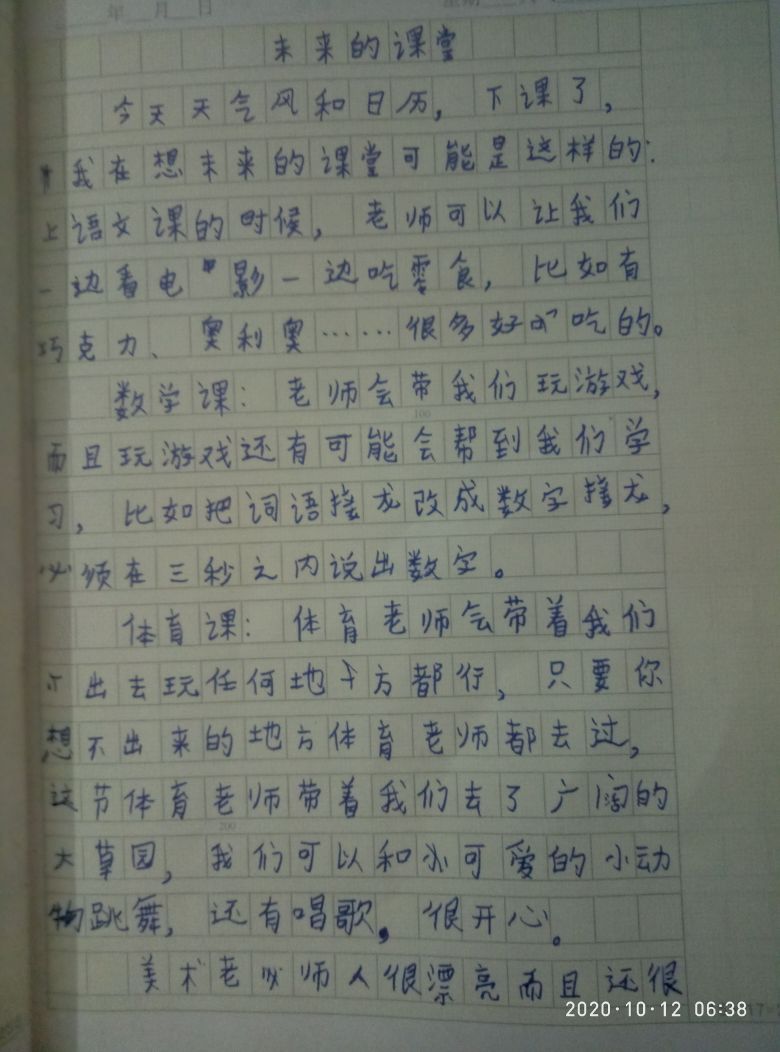 年 月 日
未来的课堂
今天天气风和日历，下课了，
我在想未来的课堂可能是这样的：
上语文课的时候，老师可以让我们
一边看电影一边吃零食，比如有
巧克力、奥利奥……很多好吃的。
数学课：老师会带我们玩游戏，
100
而且玩游戏还有可能会帮到我们学
习，比如把词语接龙改成数字接龙，
必须在三秒之内说出数字。
体育课：体育老师会带着我们
出去玩任何地方都行，只要你
想不出来的地方体育老师都去过，
这节体育老师带着我们去了广阔的
200
大草园，我们可以和小可爱的小动
物跳舞，还有唱歌，很开心。
美术老师人很漂亮而且还很
2020·10·12 06:38